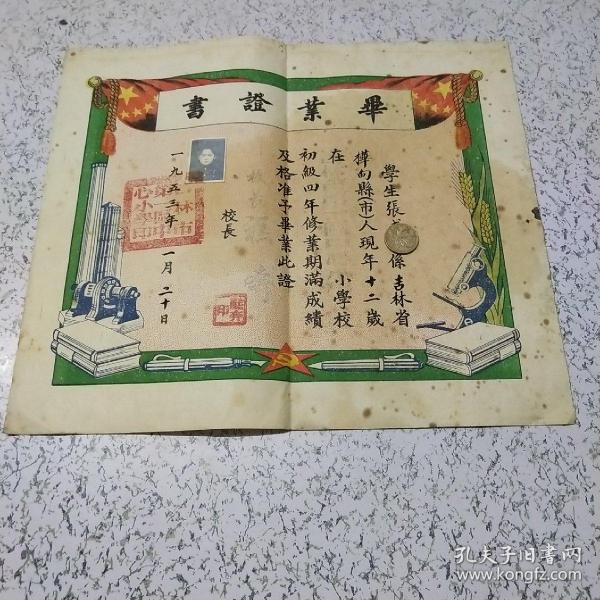 畢業證書
學生張 係吉林省
樺甸縣(市)人現年十二歲
在 小學校
初級四年修業期滿成績
及格准予畢業此證
校長
一九五三年一月二十日
孔夫子旧书网
www.kongfz.com